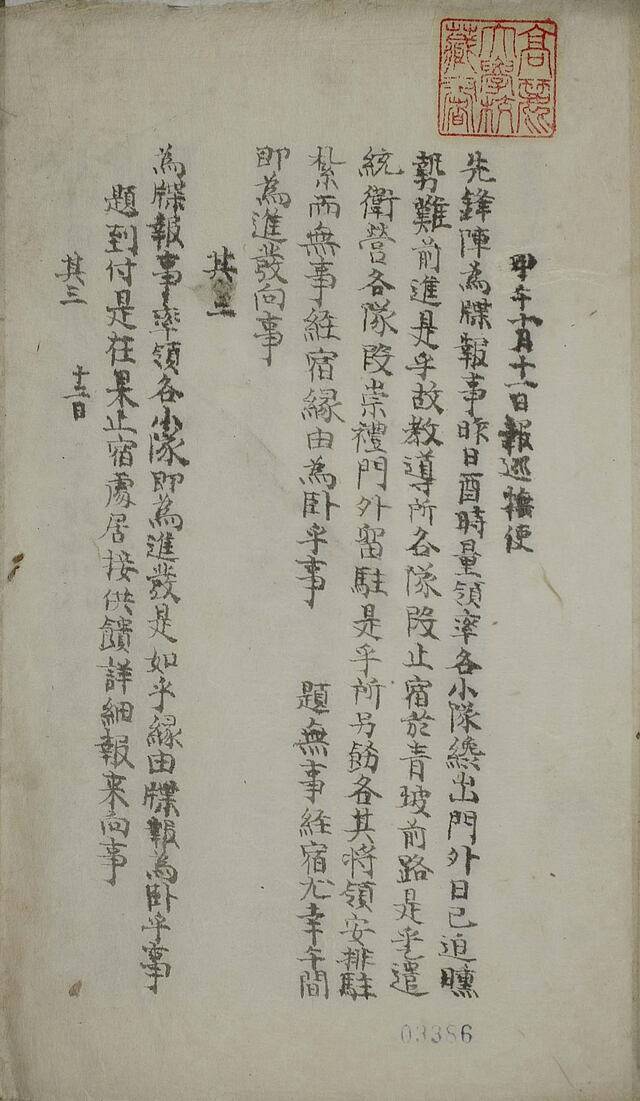 甲午十月十一日報巡撫使
先鋒陣為牒報事昨日酉時量領率各小隊纔出門外日已迫曛
勢難前進是乎故敎導所各隊段止宿於靑坡前路是乎遣
統衛營各隊段崇禮門外留駐是乎所另飭各其將領安排駐
紮而無事經宿緣由為卧乎事 題無事經宿尤幸午間
即為進發向事
其二
為牒報事率領各小隊即為進發是如乎緣由牒報為卧乎事
題到付是在果止宿處居接供饋詳細報來向事
其三 十二日
高麗大學校藏書
03386